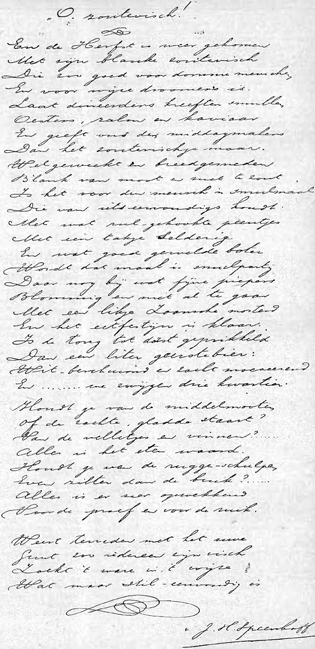 "O, zoutevisch!"
En de Herfst is weer gekomen
Met zijn blanke zoutevisch
Die zoo goed voor domme menschen
En voor wijze droomers is.
Laat dineerders kreeften smullen
Oesters, zalm en kaviaar
En geeft ons des middagmalens
Dan het zoutevischje maar.
Wel geweekt en breedgesneden
Blank van moot en niet te zout
Is het voor den mensch 'n smulmaal
Die van iets eenvoudigs houdt.
Met wat gekookte peentjes
Met een takje selderij
En wat goed gesmolte boter
Wordt dat maal 'n smulpartij
Daar nog bij wat fijne piepers
Blommig en met al te gaar
Met een likje Zaansche mosterd
En het eetfestijn is klaar.
Is de tong tot dorst geprikkeld
Dan een liter gerstebier:
Wit-beschuimd en zacht
En ........ we zwijgen drie kwartier.
Houdt ge van de middelmooten
Of de zachte, gladde staart?
Van de velletjes en vinnen? .....
Alles is het eten waard
Houdt ge van de rugge-schulpen
Even zilter dan de buik? .....
Alles is er zeer
Voor de proef en voor de ruik.
Weest tevreden met het uwe
Gunt zoo iedereen zijn visch
Zoekt 't ware in 't wijze
Wat maar stil-eenvoudig is
J. H. Speenhoff